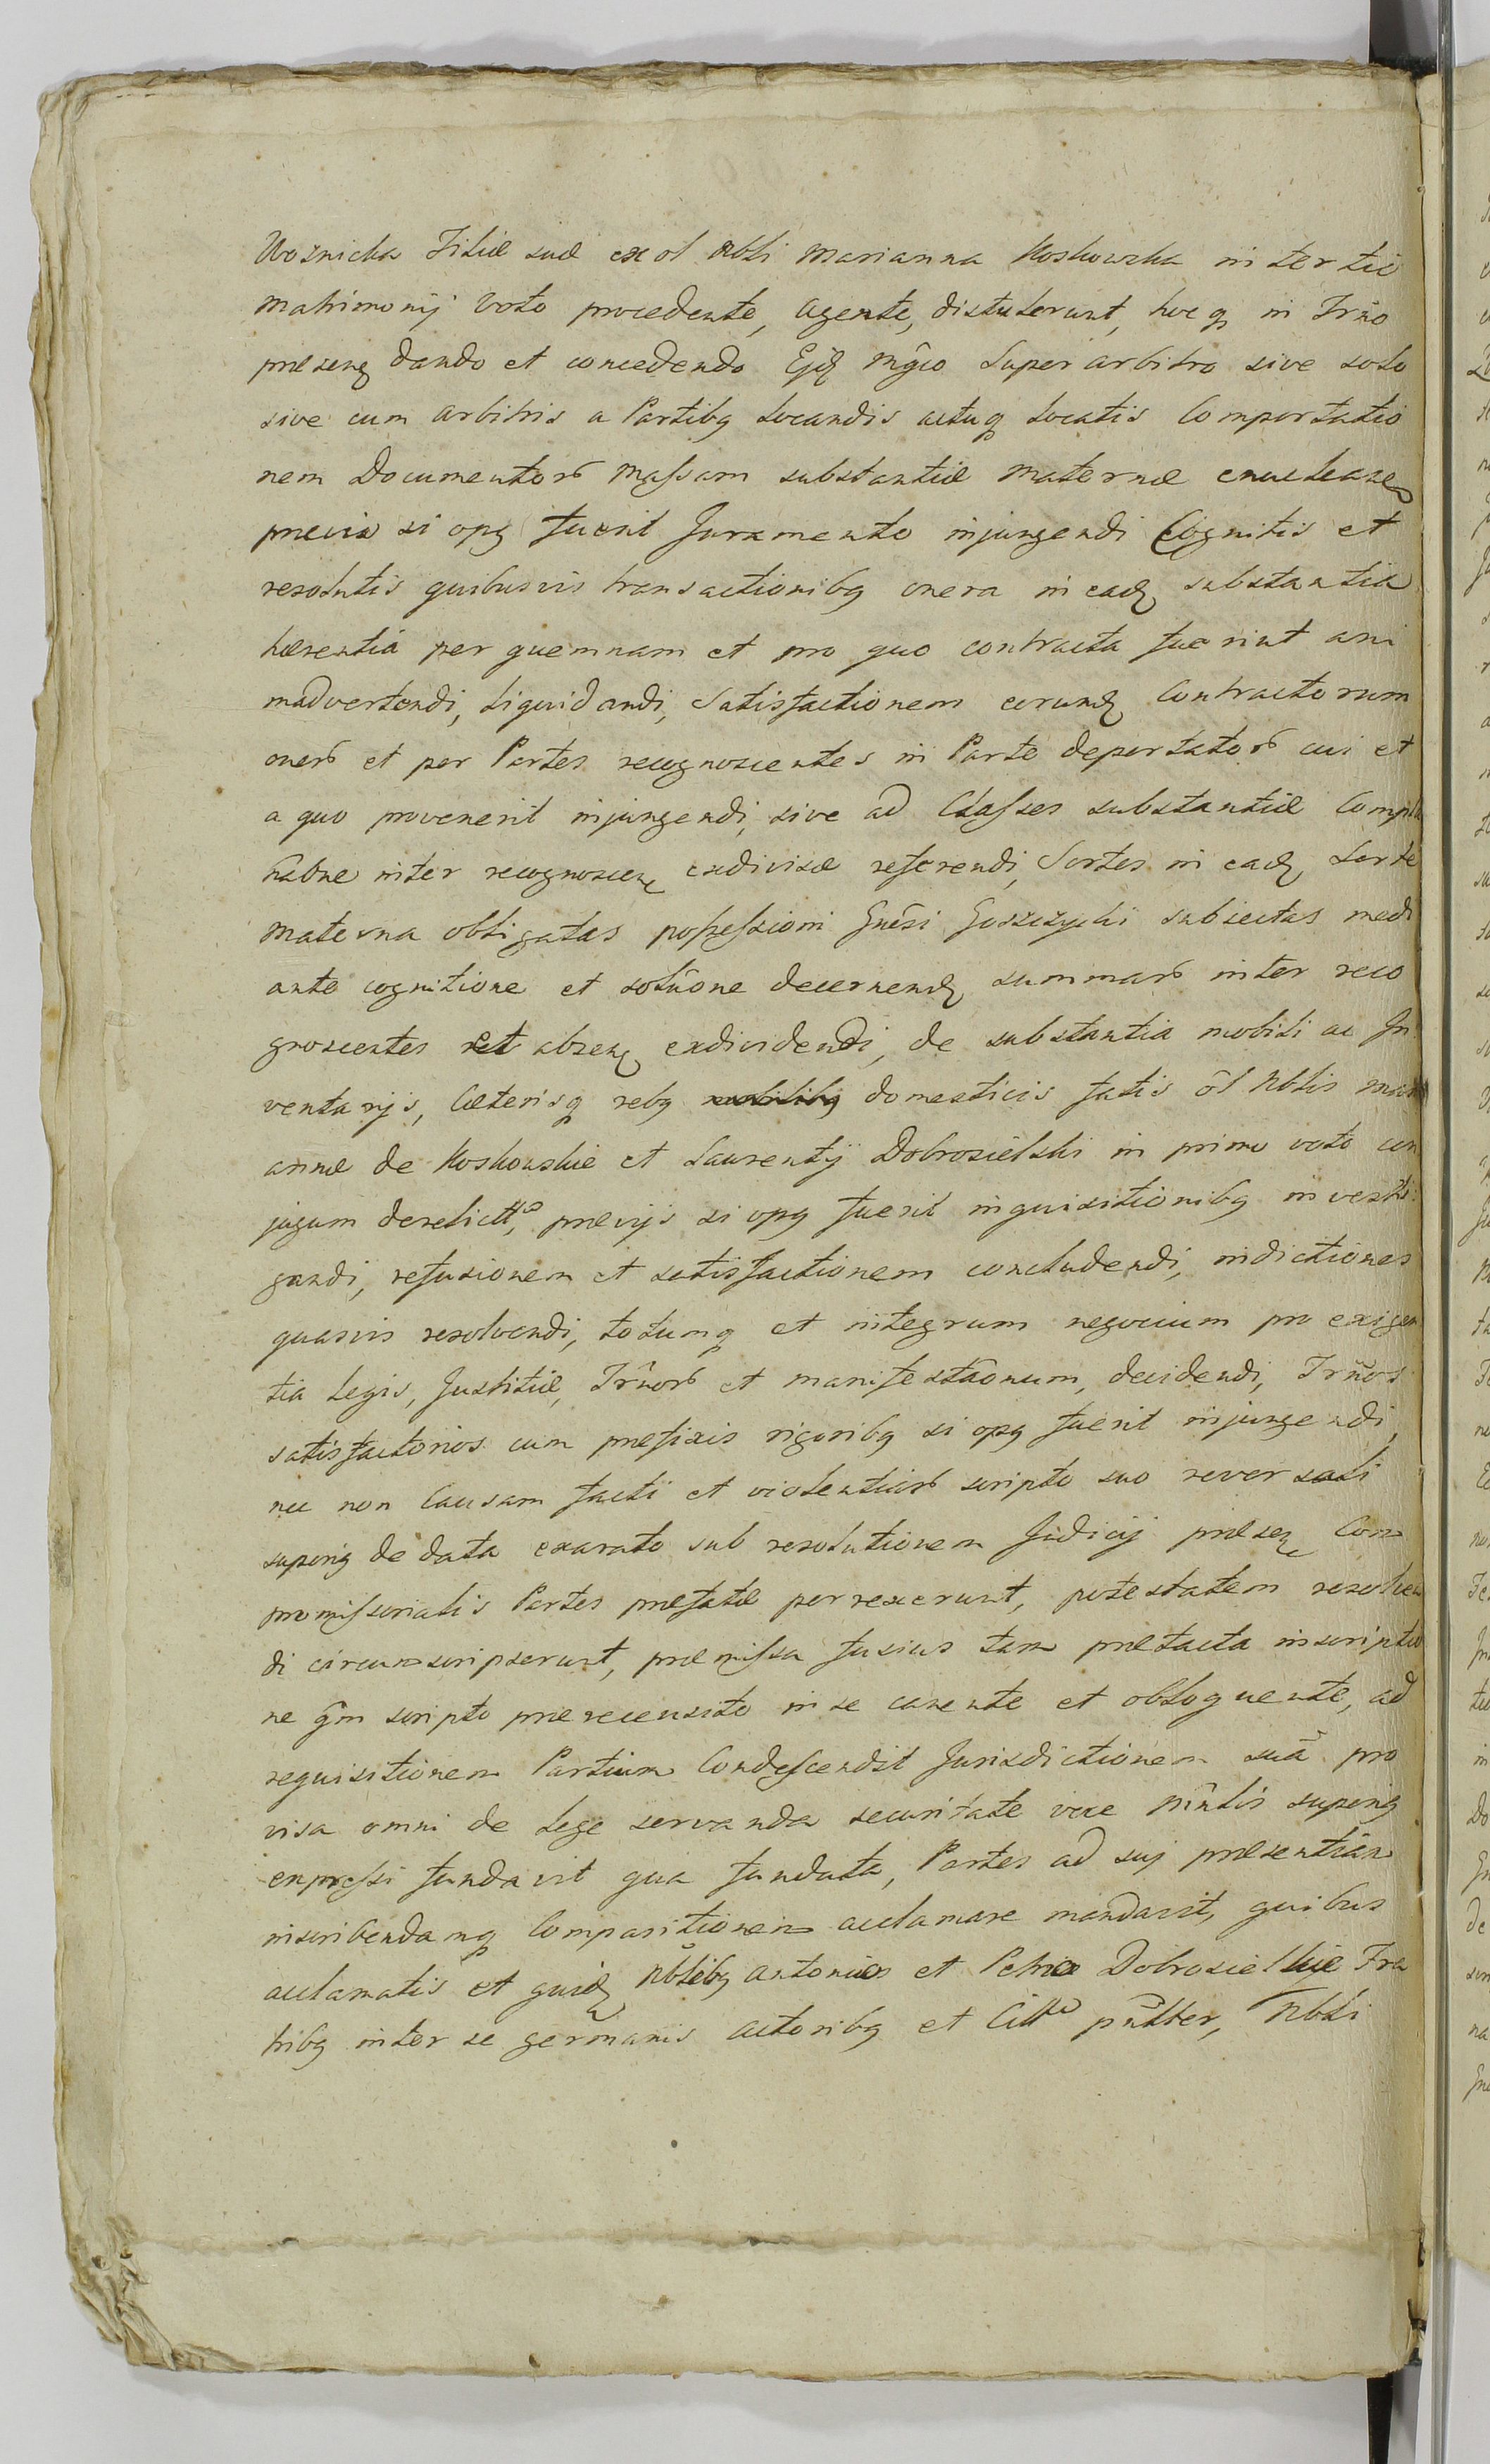 Woznicka Filiæ suæ ex ol Nbli Marianna Koskowska in tertio
Matrimonij voto procedente, agente, distulerunt, hocq in Trno
præsenq dando et concedendo Ejq Mgco Superarbitro sive solo
sive cum Arbitris a Partibq locandis actuq locatis Comportatio
nem Documentorũ Massam substantiæ Maternæ enucleare
prævio si opq fuerit Juramento injungendi Cognitis et
resolutis quibusvis transactionibq onera in eadq substantia
hærentia per quemnam et pro quo contracta fuerint ani
madvertendi, liquidandi, Satisfactionem eorundq Contractorum
onerũ et per Partes recognoscentes in Parte deportatorũ cui et
a quo provenerit injungendi, sive ad Classes substantiæ
inter recognoscenq exdivisæ referendi, Sortes in eadq Sorte
Materna obligatas possessioni Gnẽsi Goszczycki subiectas medi
ante cognitione et solũone decernendq summarũ inter reco
gnoscentes et absenq exdividendi, de substantia mobili ac In
ventarijs, Cæterisq rebq domesticis fatis õl Nblis Mari
annæ de Koskowskie et Laurentij Dobrosielski in primo voto con
jugum derelictis, prævijs si opq fuerit inquisitionibq investi
gandi, refusionem et satisfactionem concludendi, indictiones
quasvis resolvendi, totumq et integrum negocium pro exigen
tia Legis, Justitiæ, Trñorũ et manifestãonum, decidendi, Trños
satisfactorios cum præfixis rigoribq si opq fuerit injungendi,
nec non Causam facti et violentiarũ scripto suo reversali
superiq de data exarato sub resolutionem Judicij præsenq Com
promissorialis Partes præfatæ porrexerunt, potestatem resolven
di circumscripserunt, præmissa fusius tam prætacta inscriptio
ne qm scripto prærecensito in se canente et obloquente, ad
requisitionem Partium Condescendit Jurisdictionem suã pro
visa omni de Lege servanda securitate voce Mñlis superiq
expressi fundavit qua fundata, Partes ad suj præsentiam
inscribendamq Comparitionem acclamare mandavit, quibus
acclamatis et quidq Nblibq Antonio et Petro Dobrosielskie Fra
tribq inter se germanis Actoribq et pñtter, Nbli